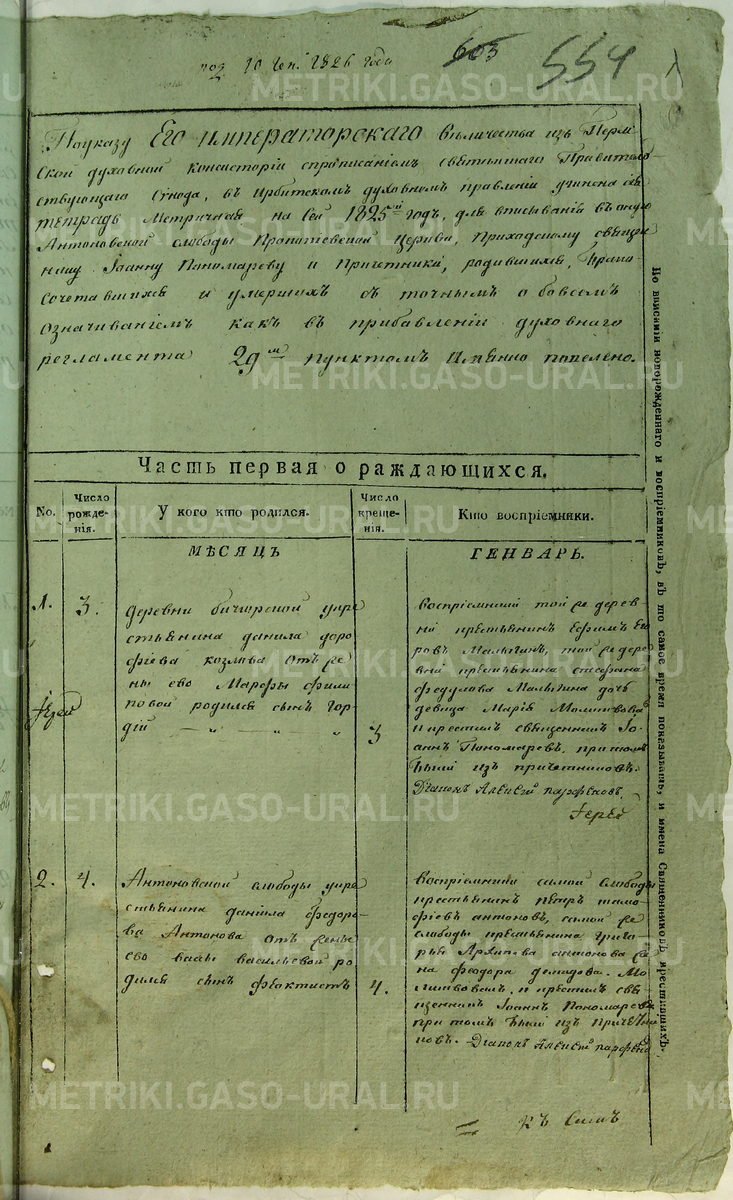 10 Ген. 1826 года
603
554
По указу Его императорскаго величества изъ Перм
ской духовной консисторіи спрописаніемъ святѣйшаго Правитель
ствующаго Сѵнода, въ Ирбитскомъ духовномъ правленіи учинена сія
тетрадь Метричная на Сей 1825й годъ, для вписыванія въ оную
Антоновской слободы Церкви, Приходскому священ
нику Іоанну Пономареву и Причетники, родившихся, Брако
сочетавшихся и умершихъ съ точнымъ о всемъ
означиваніемъ какъ въ прибавленіи духовнаго
регламента 29м пунктомъ Имянно повелено.
Часть первая о раждающихся.
No.
Число рожде-нія.
У кого кто родился.
Число креще-нія.
Кто воспріемники.
МѢСЯЦЪ
ГЕНВАРЬ.
1.
3.
деревни кре
стьянина данила доро
фѣева козлова отъ же
ны ево Марфы фили
повой родился сынъ гор
дій
3
Воспріемники той же дерев
ни крестьянинъ Ефимъ Его
ровъ Малыгинъ, той же дере
вни крестьянина стефана
федулова Малыгина дочь
девица Марія Молитвовал
и крестилъ священникъ Іо
аннъ Пономаревъ. при томъ
были изъ причетниковъ.
Діаконъ Алексѣй парфеновъ
Іерей
Іерей
2.
4.
Антоновской слободы кре
стьянина даніила федоро
ва Антонова отъ жены
ево васы васильевой ро
дился сынъ феоктистъ
4.
Воспріемники самой слободы
крестьянинъ пѣтръ тимо
фіевъ антоновъ, самой же
слободы крестьянина григо
рья Архипова антонова
феодора демидова. Мо
литвовалъ. и крестилъ свя
щенникъ Іоаннъ Пономаревъ
при томъ были изъ Причетни
ковъ. Діаконъ Алексѣй парфено
Къ Симъ
Но вписаніи новорожденнаго и воспріемниковъ, въ то самое время показывать, и имена Священниковъ крестившихъ.
METRIKI.GASO-URAL.RU